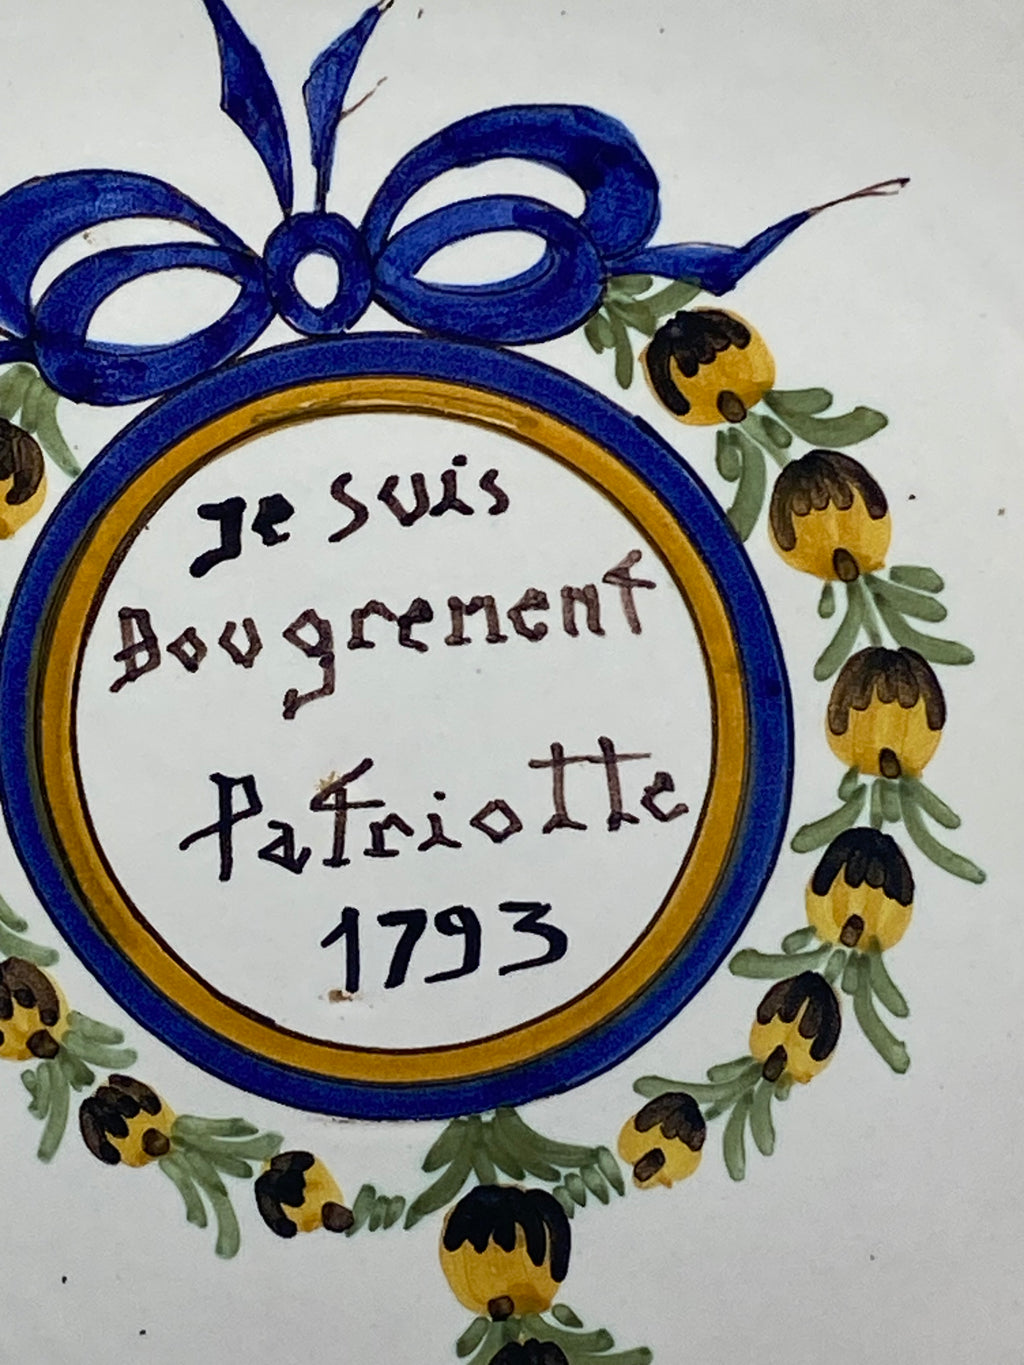 Je suis
Bougrement
Patriotte
1793